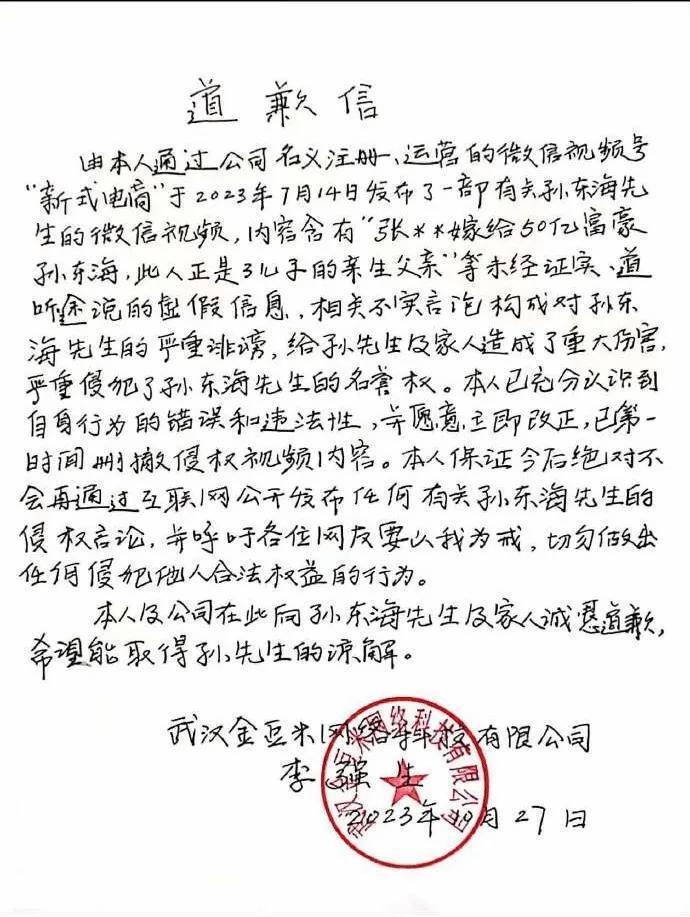 道歉信
由本人通过公司名义注册、运营的微信视频号
“新式电商”于2023年7月14日发布了一部有关孙东海先
生的微信视频,内容含有“张**嫁给50亿富豪
孙东海,此人正是3儿子的亲生父亲”等未经证实、道
听途说的虚假信息,相关不实言论构成对孙东
海先生的严重诽谤,给孙先生及家人造成了重大伤害,
严重侵犯了孙东海先生的名誉权。本人已充分认识到
自身行为的错误和违法性,并愿意立即改正,已第一
时间删撤侵权视频内容。本人保证今后绝对不
会再通过互联网公开发布任何有关孙东海先生的
侵权言论,并呼吁各位网友要以我为戒,切勿做出
任何侵犯他人合法权益的行为。
本人及公司在此向孙东海先生及家人诚恳道歉,
希望能取得孙先生的谅解。
武汉金豆米网络科技有限公司
李强生
2023年10月27日
武汉金豆米网络科技有限公司